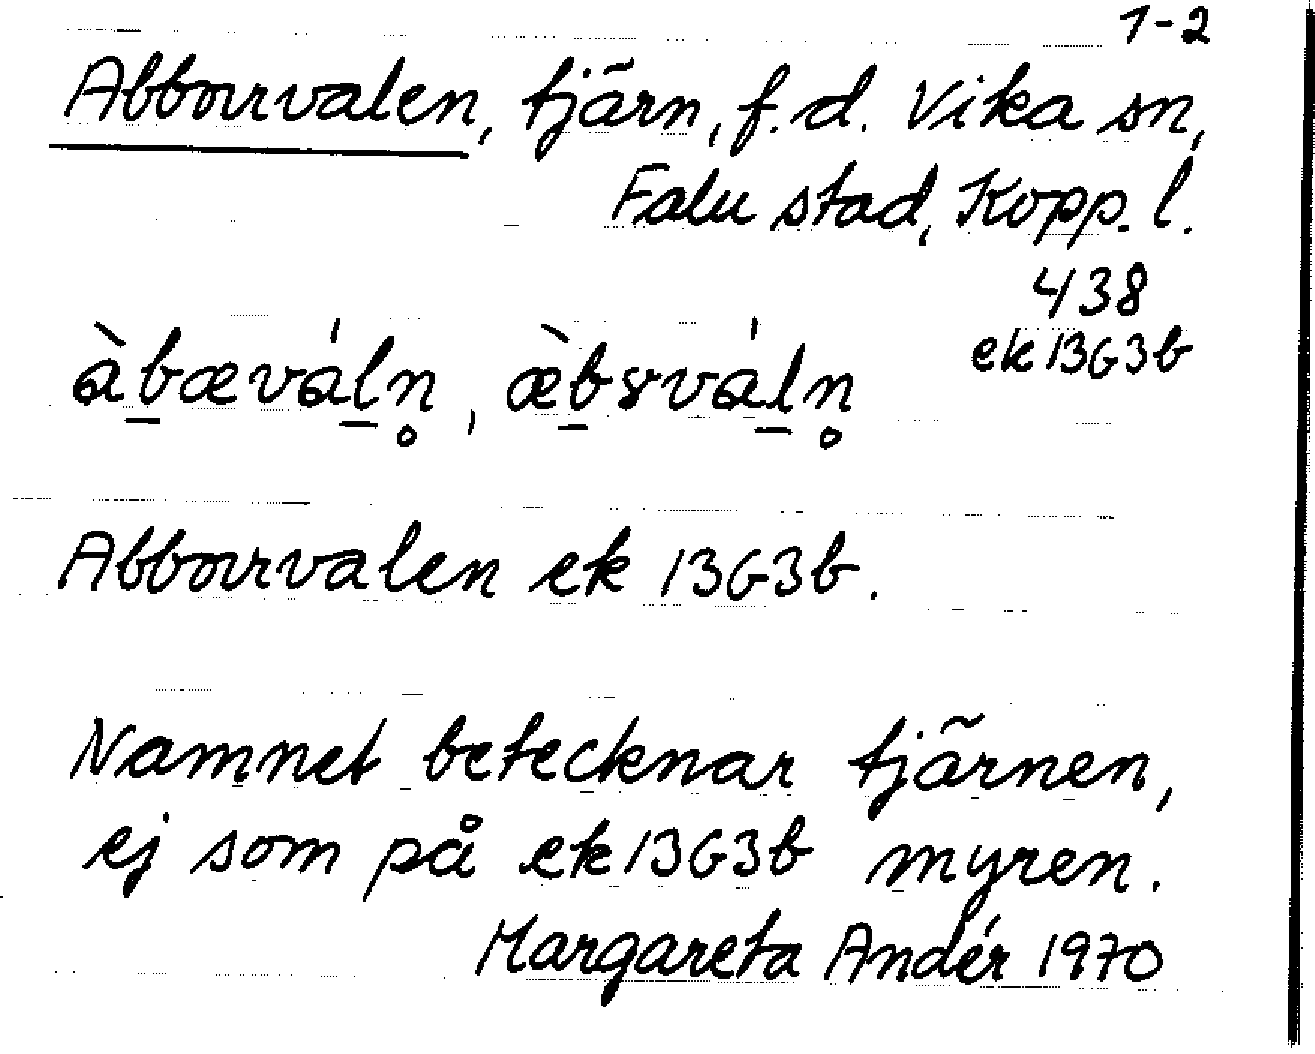 1-2
Abborrvalen, tjärn, f.d. Vika sn,
Falu stad, Kopp. l.
438
ek 13G3b
àb̲ævál̲n̥, æ̀b̲ɤvál̲n̥
Abborrvalen ek 13G3b.
Namnet betecknar tjärnen,
ej som på ek 13G3b myren.
Margareta Andér 1970